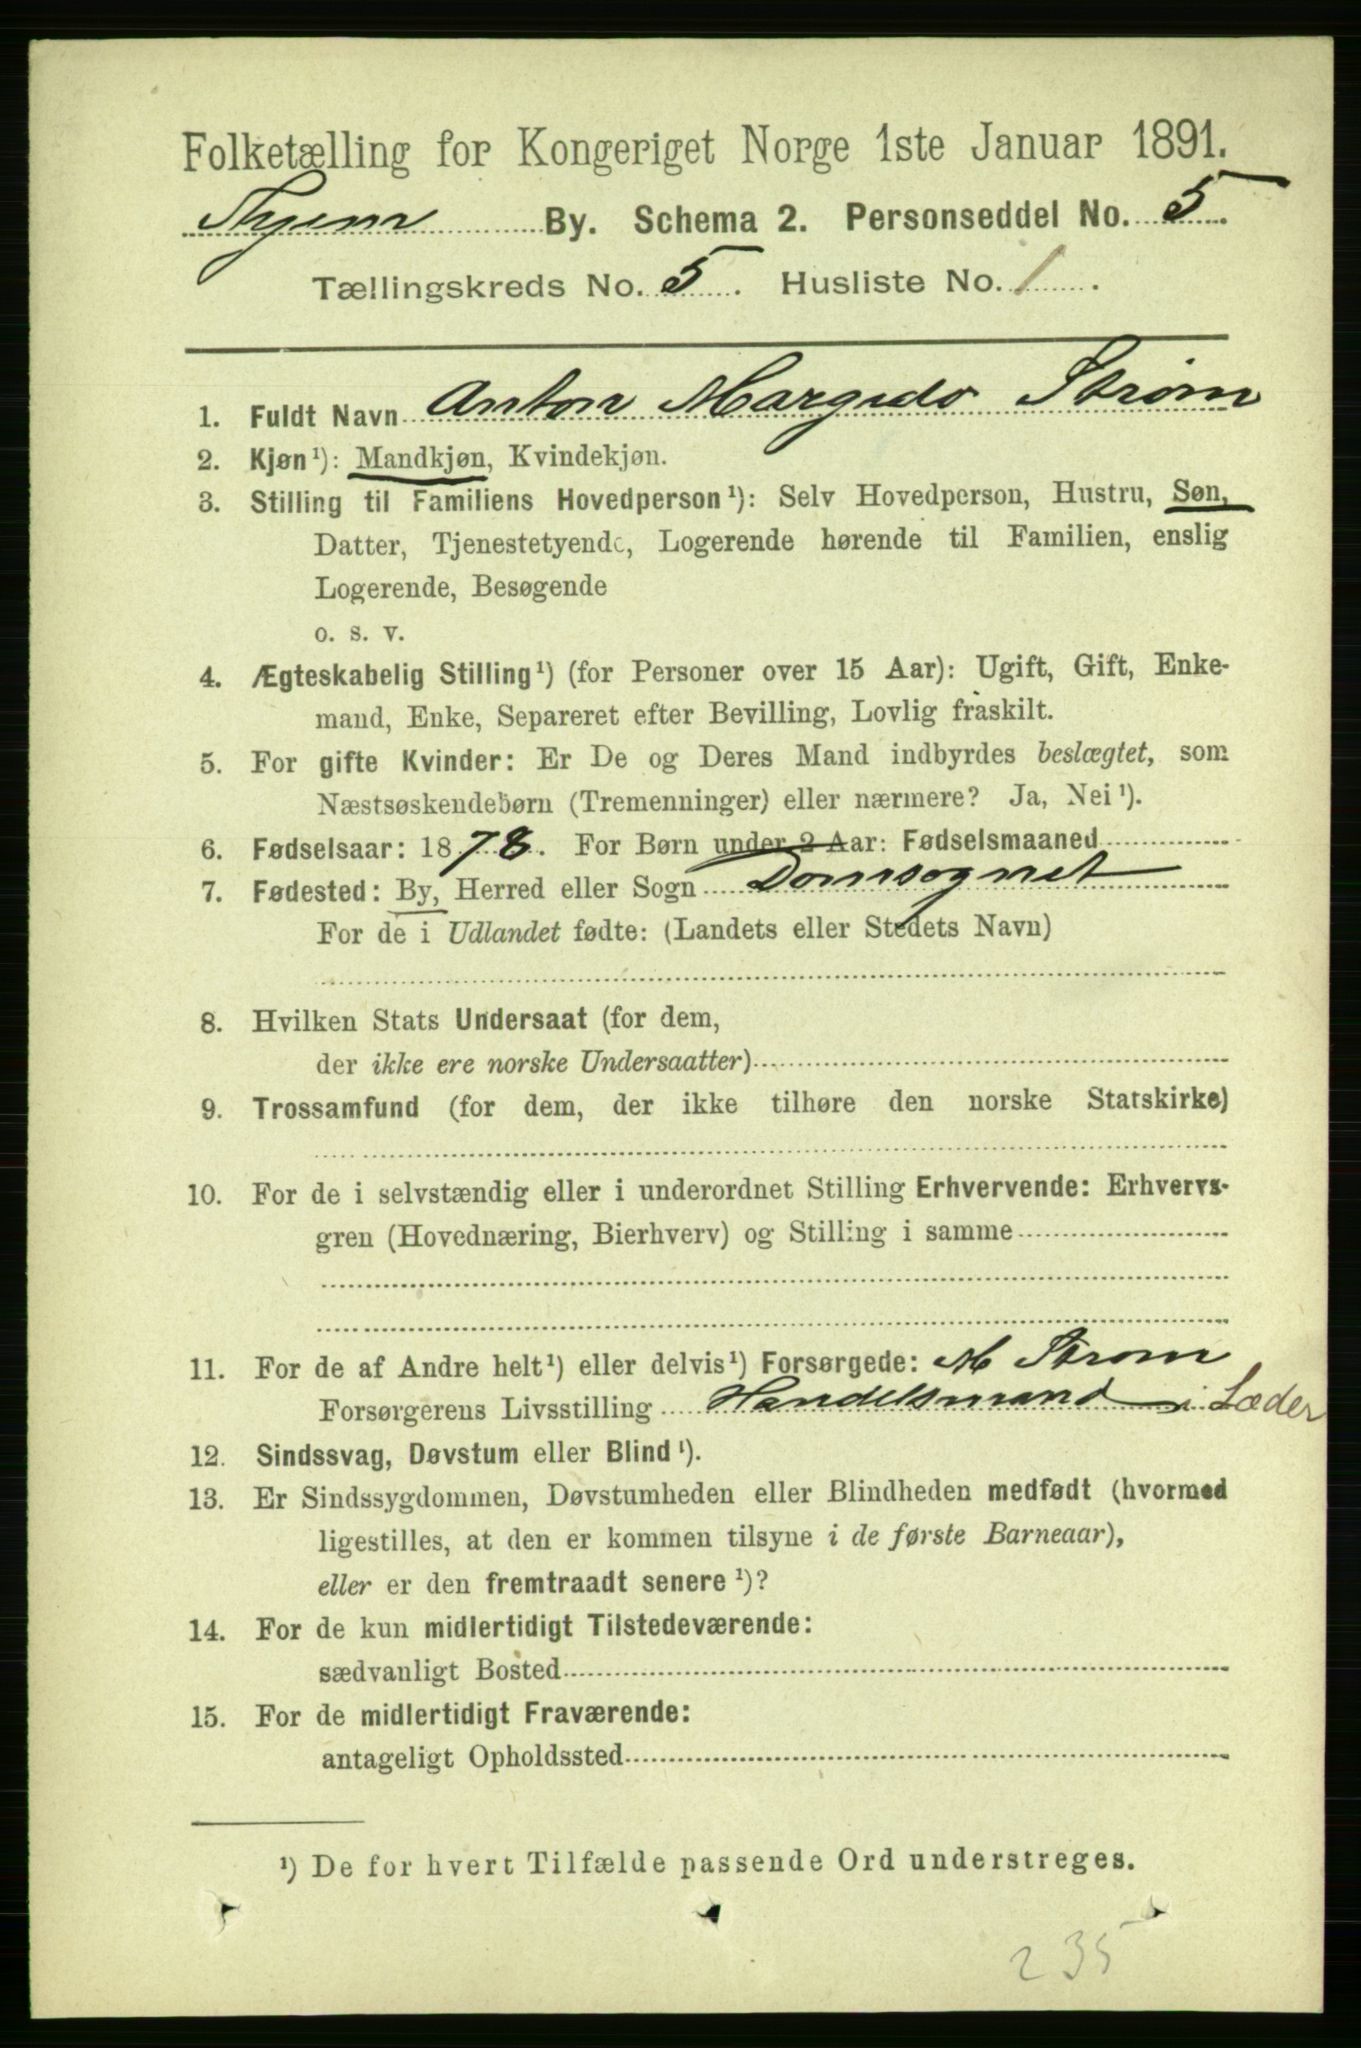 Folketælling for Kongeriget Norge 1ste Januar 1891.
Thjem By. Schema 2. Personseddel No. 5.
Tællingskreds No. 5. Husliste No. 1.
1. Fuldt Navn Anton Margido Strøm
2. Kjøn¹): Mandkjøn, Kvindekjøn.
3. Stilling til Familiens Hovedperson¹): Selv Hovedperson, Hustru, Søn,
Datter, Tjenestetyende, Logerende hørende til Familien, enslig
Logerende, Besøgende
o. s. v.
4. Ægteskabelig Stilling¹) (for Personer over 15 Aar): Ugift, Gift, Enke-
mand, Enke, Separeret efter Bevilling, Lovlig fraskilt.
5. For gifte Kvinder: Er De og Deres Mand indbyrdes beslægtet, som
Næstsøskendebørn (Tremenninger) eller nærmere? Ja, Nei¹).
6. Fødselsaar: 1878. For Børn under 2 Aar: Fødselsmaaned
7. Fødested: By, Herred eller Sogn Domsognet
For de i Udlandet fødte: (Landets eller Stedets Navn)
8. Hvilken Stats Undersaat (for dem,
der ikke ere norske Undersaatter)
9. Trossamfund (for dem, der ikke tilhøre den norske Statskirke)
10. For de i selvstændig eller i underordnet Stilling Erhvervende: Erhvervs-
gren (Hovednæring, Bierhverv) og Stilling i samme
11. For de af Andre helt¹) eller delvis¹) Forsørgede: M Strøm
Forsørgerens Livsstilling Handelsmand i Læder
12. Sindssvag, Døvstum eller Blind¹).
13. Er Sindssygdommen, Døvstumheden eller Blindheden medfødt (hvormed
ligestilles, at den er kommen tilsyne i de første Barneaar),
eller er den fremtraadt senere¹)?
14. For de kun midlertidigt Tilstedeværende:
sædvanligt Bosted
15. For de midlertidigt Fraværende:
antageligt Opholdssted
¹) De for hvert Tilfælde passende Ord understreges.
235